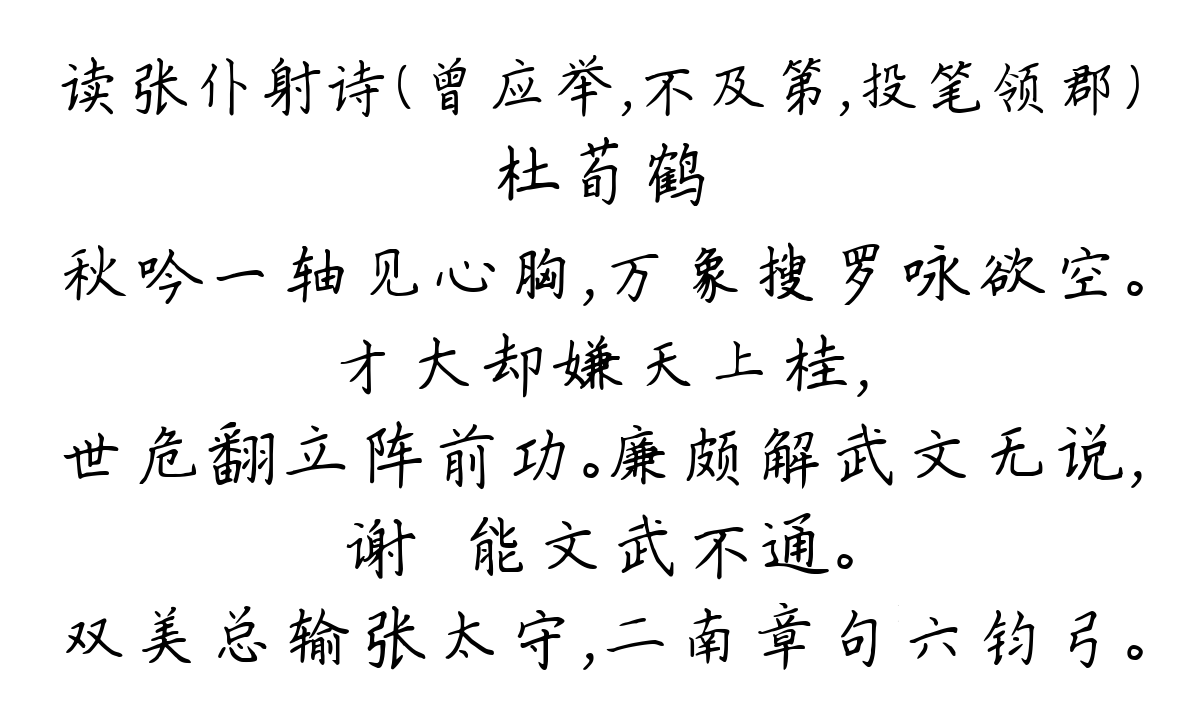 读张仆射诗(曾应举,不及第,投笔领郡)
杜荀鹤
秋吟一轴见心胸,万象搜罗咏欲空。
才大却嫌天上桂,
世危翻立阵前功。廉颇解武文无说,
谢 能文武不通。
双美总输张太守,二南章句六钧弓。